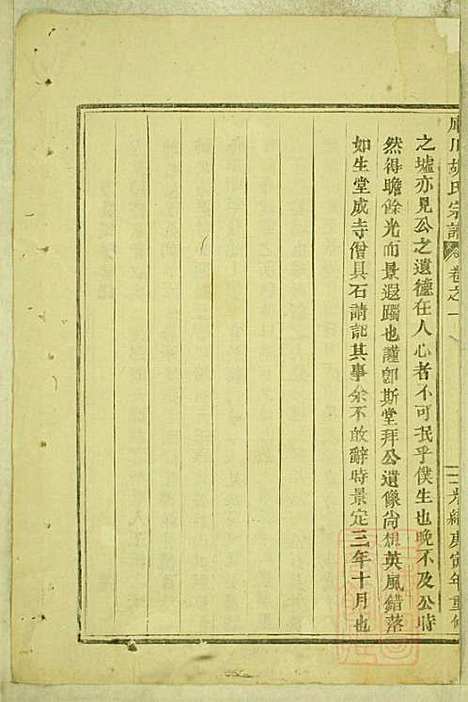 胡氏宗譜
卷之一
光緒庚寅年重修
之墟亦見公之遺德在人心者不可泯乎僕生也晚不及公時
然得瞻餘光而景遐躅也謹卽斯堂拜公遺像尙想英風錯落
如生堂成寺僧具石請記其事余不敢辭時景定三年十月也